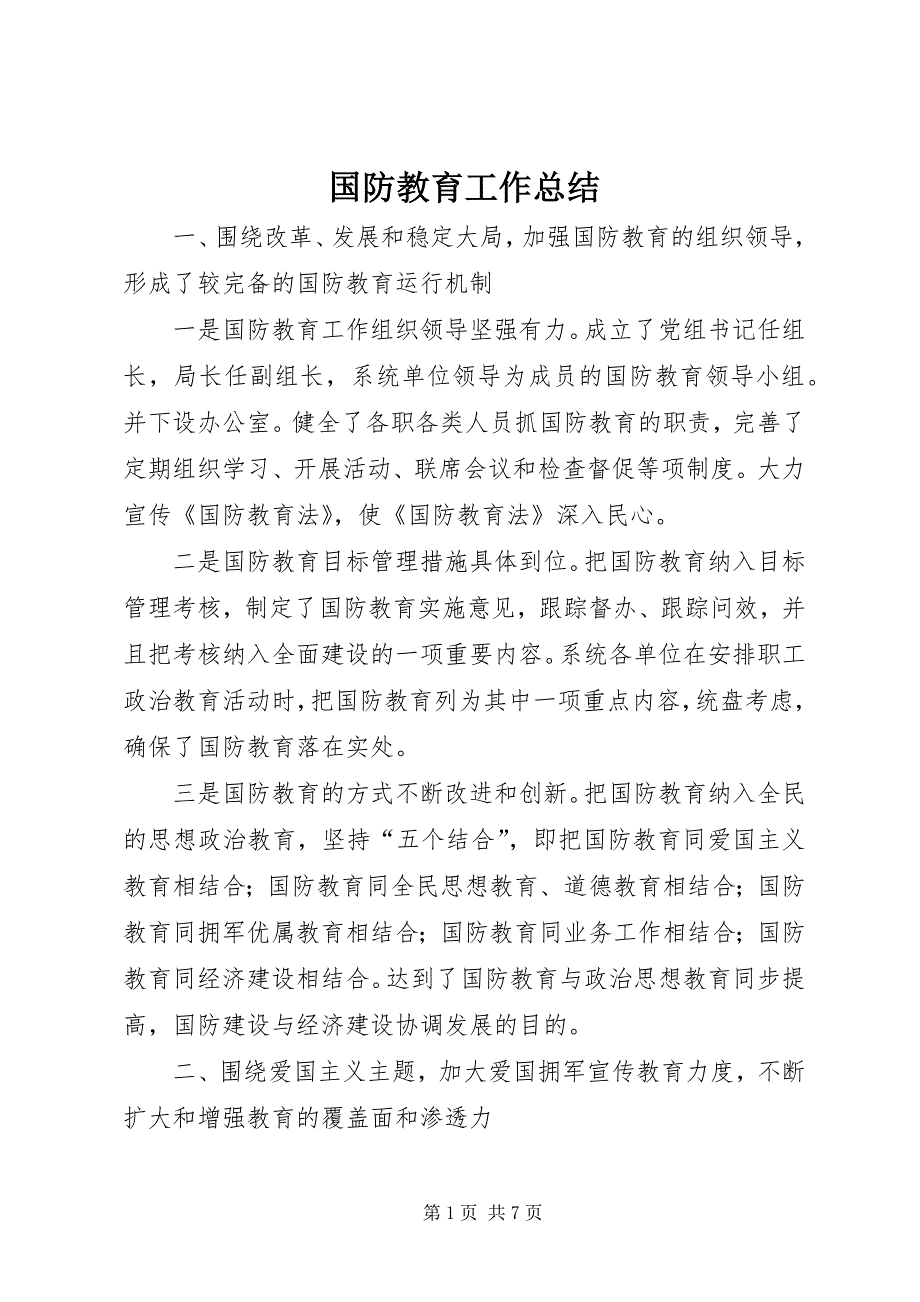 国防教育工作总结
一、围绕改革、发展和稳定大局，加强国防教育的组织领导，
形成了较完备的国防教育运行机制
一是国防教育工作组织领导坚强有力。成立了党组书记任组
长，局长任副组长，系统单位领导为成员的国防教育领导小组。
并下设办公室。健全了各职各类人员抓国防教育的职责，完善了
定期组织学习、开展活动、联席会议和检查督促等项制度。大力
宣传《国防教育法》，使《国防教育法》深入民心。
二是国防教育目标管理措施具体到位。把国防教育纳入目标
管理考核，制定了国防教育实施意见，跟踪督办、跟踪问效，并
且把考核纳入全面建设的一项重要内容。系统各单位在安排职工
政治教育活动时，把国防教育列为其中一项重点内容，统盘考虑，
确保了国防教育落在实处。
三是国防教育的方式不断改进和创新。把国防教育纳入全民
的思想政治教育，坚持“五个结合”，即把国防教育同爱国主义
教育相结合；国防教育同全民思想教育、道德教育相结合；国防
教育同拥军优属教育相结合；国防教育同业务工作相结合；国防
教育同经济建设相结合。达到了国防教育与政治思想教育同步提
高，国防建设与经济建设协调发展的目的。
二、围绕爱国主义主题，加大爱国拥军宣传教育力度，不断
扩大和增强教育的覆盖面和渗透力
第 1 页 共 7 页